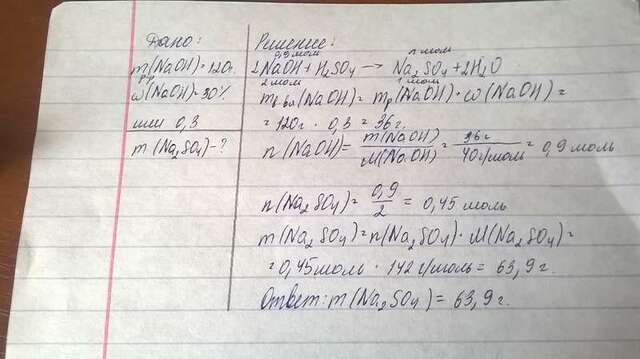 Дано:
m(NaOH)=120г.
р-р
ω(NaOH)=30%
или 0,3
m(Na2SO4)-?
Решение:
0,9 моль n моль
2NaOH+H2SO4→Na2SO4+2H2O
2 моль 1 моль
m в-ва(NaOH)=mр(NaOH)·ω(NaOH)=
=120г·0,3=36г.
n(NaOH)=m(NaOH)/M(NaOH)=36г/40г/моль=0,9 моль
n(Na2SO4)=0,9/2=0,45 моль
m(Na2SO4)=n(Na2SO4)·M(Na2SO4)=
=0,45моль·142 г/моль=63,9 г.
Ответ: m(Na2SO4)=63,9 г.